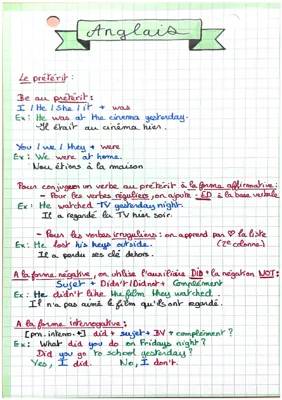 Anglais
Le prétérit :
Be au prétérit :
I / He / She / it + was
Ex : He was at the cinema yesterday.
Il était au cinéma hier.
You / we / they + were
Ex : We were at home.
Nou étions à la maison
Pour conjuguer un verbe au prétérit à la forme affirmative :
- Pour les verbes réguliers, on ajoute : ED à la base verbale
Ex : He watched TV yesterday night.
Il a regardé la TV hier soir.
- Pour les verbes irréguliers : on apprend par ♡ la liste
Ex : He lost his keys outside. (2e colonne)
Il a perdu ses clé dehors.
A la forme négative, on utilise l'auxiliaire DID + la négation NOT :
Sujet + Didn't / Did not + Complément
Ex : He didn't like the film they watched.
Il n'a pas aimé le film qu'ils ont regardé.
A la forme interrogative :
[pro. interro. +] did + sujet + BV + complément ?
Ex : What did you do on Fridays night ?
Did you go to school yesterday ?
Yes, I did. No, I don't.